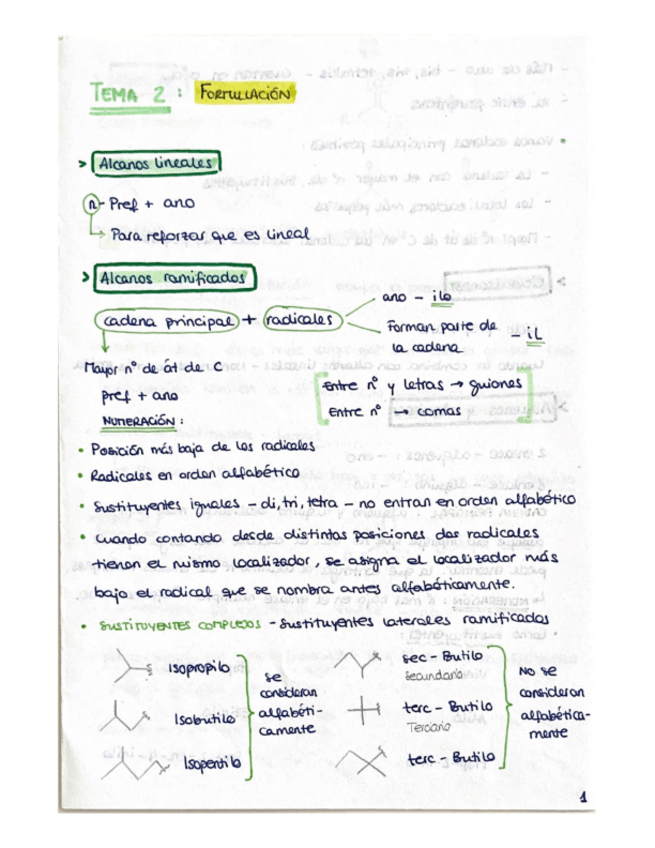 TEMA 2 : FORMULACIÓN
> Alcanos lineales
n - Pref + ano
Para reforzar que es lineal
> Alcanos ramificados
cadena principal + radicales
ano - ilo
Forman parte de la cadena - iL
Mayor nº de át de C
pref + ano
Entre nº y letras → guiones
Entre nº → comas
NUMERACIÓN :
• Posición más baja de los radicales
• Radicales en orden alfabético
• Sustituyentes iguales - di, tri, tetra - no entran en orden alfabético
• Cuando contando desde distintas posiciones dos radicales
tienen el mismo localizador, se asigna el localizador más
bajo el radical que se nombra antes alfabéticamente.
• SUSTITUYENTES COMPLEJOS - Sustituyentes laterales ramificados
Isopropilo
Isobutilo
Isopentilo
se
consideran
alfabéti-
camente
sec - Butilo
Secundario
terc - Butilo
Terciario
terc - Butilo
No se
consideran
alfabética-
mente
1